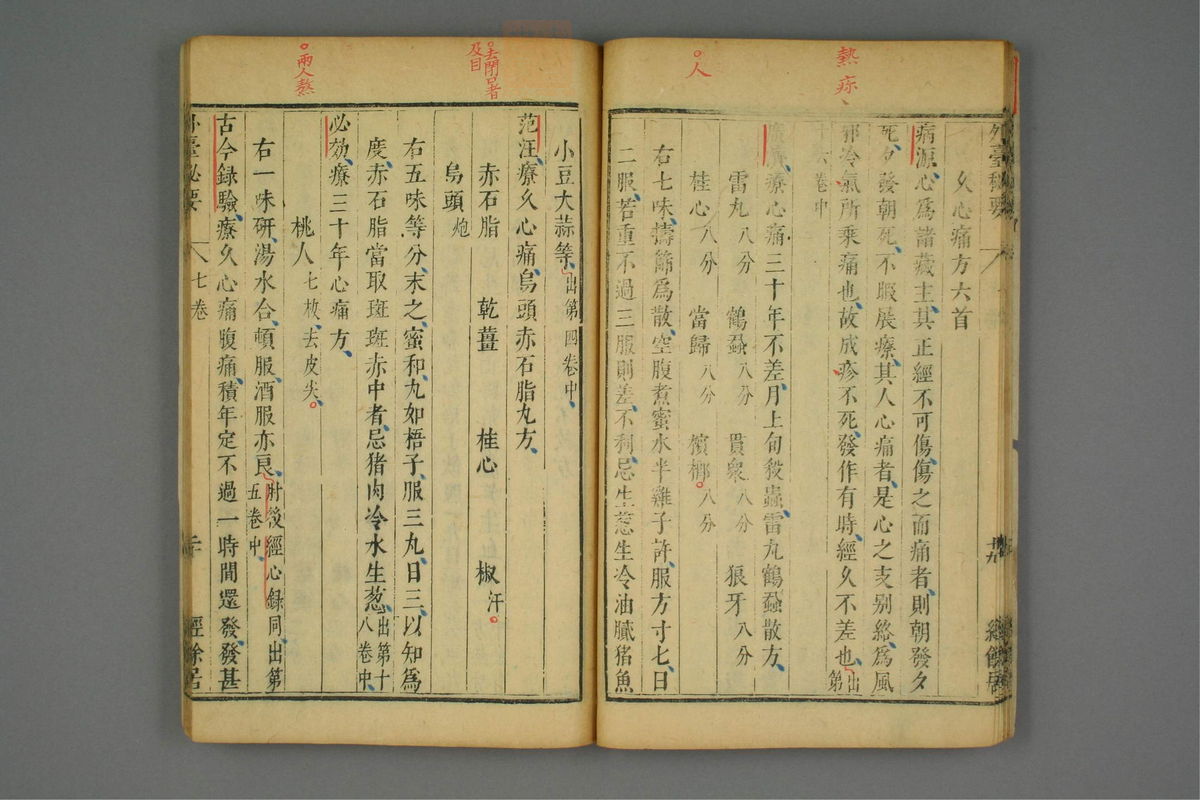 熱疹
人
久心痛方六首
病源心爲諸藏主其正經不可傷傷之而痛者則朝發夕
死夕發朝死不暇展療其人心痛者是心之支别絡爲風
邪冷氣所乘痛也故成疹不死發作有時經久不差也出第
十六卷中
療心痛三十年不差月上旬殺蟲雷丸鶴蝨散方
雷丸八分 鶴蝨八分 貫衆八分 狼牙八分
桂心八分 當歸八分 檳榔八分
右七味擣篩爲散空腹煮蜜水半雞子許服方寸匕日
二服若重不過三服則差不利忌生葱生冷油膩猪魚
去閉口者
及目
兩人熬
小豆大蒜等出第四卷中
范汪療久心痛烏頭赤石脂丸方
赤石脂 乾薑 桂心 椒汗
烏頭炮
右五味等分末之蜜和丸如梧子服三丸日三以知爲
度赤石脂當取斑斑赤中者忌猪肉冷水生葱出第十八卷中
必効療三十年心痛方
桃人七枚去皮尖
右一味研湯水合頓服酒服亦良肘後經心録同出第五卷中
古今録驗療久心痛腹痛積年定不過一時間還發發甚
外臺秘要 七卷 二十 經餘居
外臺秘要 十九 經餘居